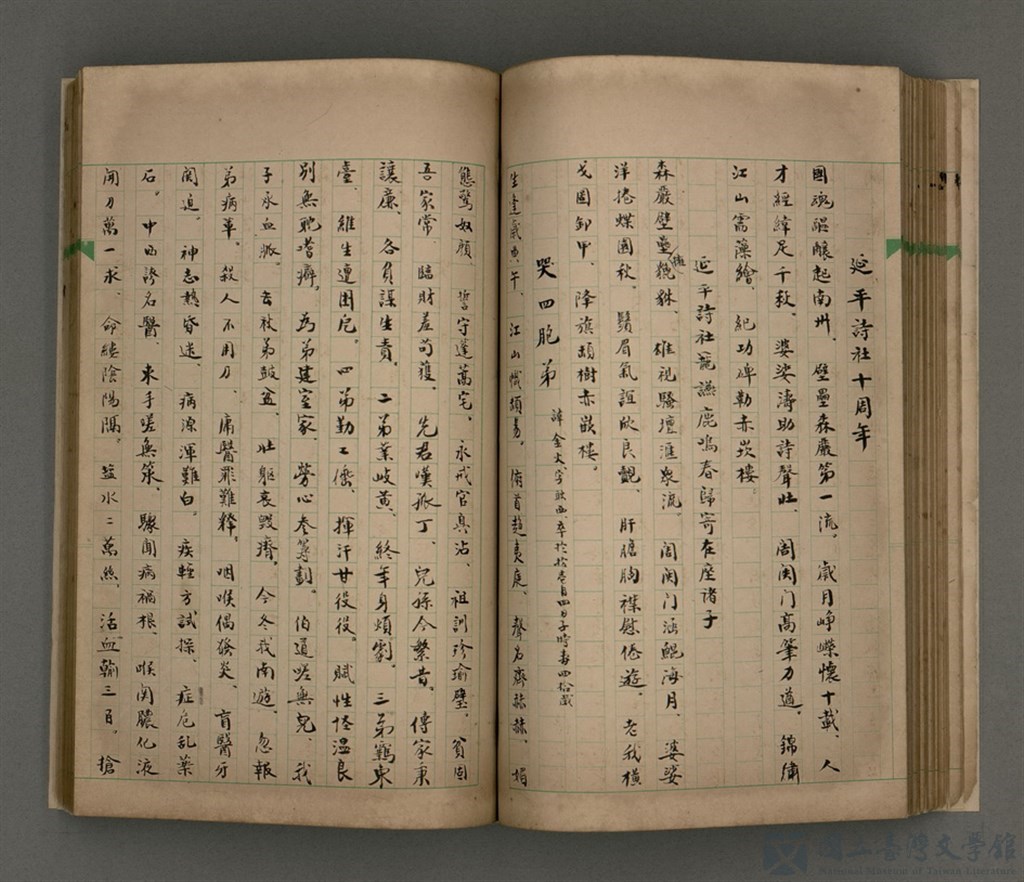 延平詩社十周年
國魂謳釀起南州、壁壘森嚴第一流。歲月崢嶸懷十載、人
才經緯足千秋。婆娑濤助詩聲壯、閶闔门高筆力遒。錦繡
江山需藻繪、紀功碑勒赤崁樓。
延平詩社 讌鹿鳴春歸寄在座諸子
森嚴壁壘 貔貅、雄視騷壇滙眾流。閶闔门涵鯤海月、婆娑
洋捲蝶園秋。鬚眉氣誼欣良覿、肝膽胸襟慰倦遊。老我橫
戈固卸甲、降旗頡樹赤崁樓。
哭四胞弟 諱金火、字 卒於拾壹月四日子時壽四拾歲
生逢歲 午、江山幟頻易。俯首趨夷庭、聲名齊赫赫、媚
態驚奴顏 誓守蓬蒿宅、永戒官臭沾、祖訓珍瑜璧、貧固
吾家常、臨財羞苟獲、先君嘆孤丁、兒孫今繁昔、傳家秉
讓廉、各負謀生責、二弟業岐黃、終年身煩劇。三弟羈東
臺、維生遭困厄。四弟勤工傭、揮汗甘役役。賦性怪温良
別無耽嗜癖。為弟建室家、勞心叁籌劃。伯道嗟無兒、我
子承血脈。去秋弟鼓盆、壯軀哀毀瘠。今冬我南遊、忽報
弟病革。殺人不用刀、庸醫罪難釋。咽喉偶發炎、盲醫牙
関迫。神志熱昏迷、病源渾難白。疾輕方試探、症危乱藥
石。中西誇名醫、束手嗟無策、驟聞病禍根、喉関膿化液
開刀萬一求、命縷陰陽隔。盐水二萬絲、活血輸三百。搶
國立臺灣文學館
National Museum of Taiwan Literature